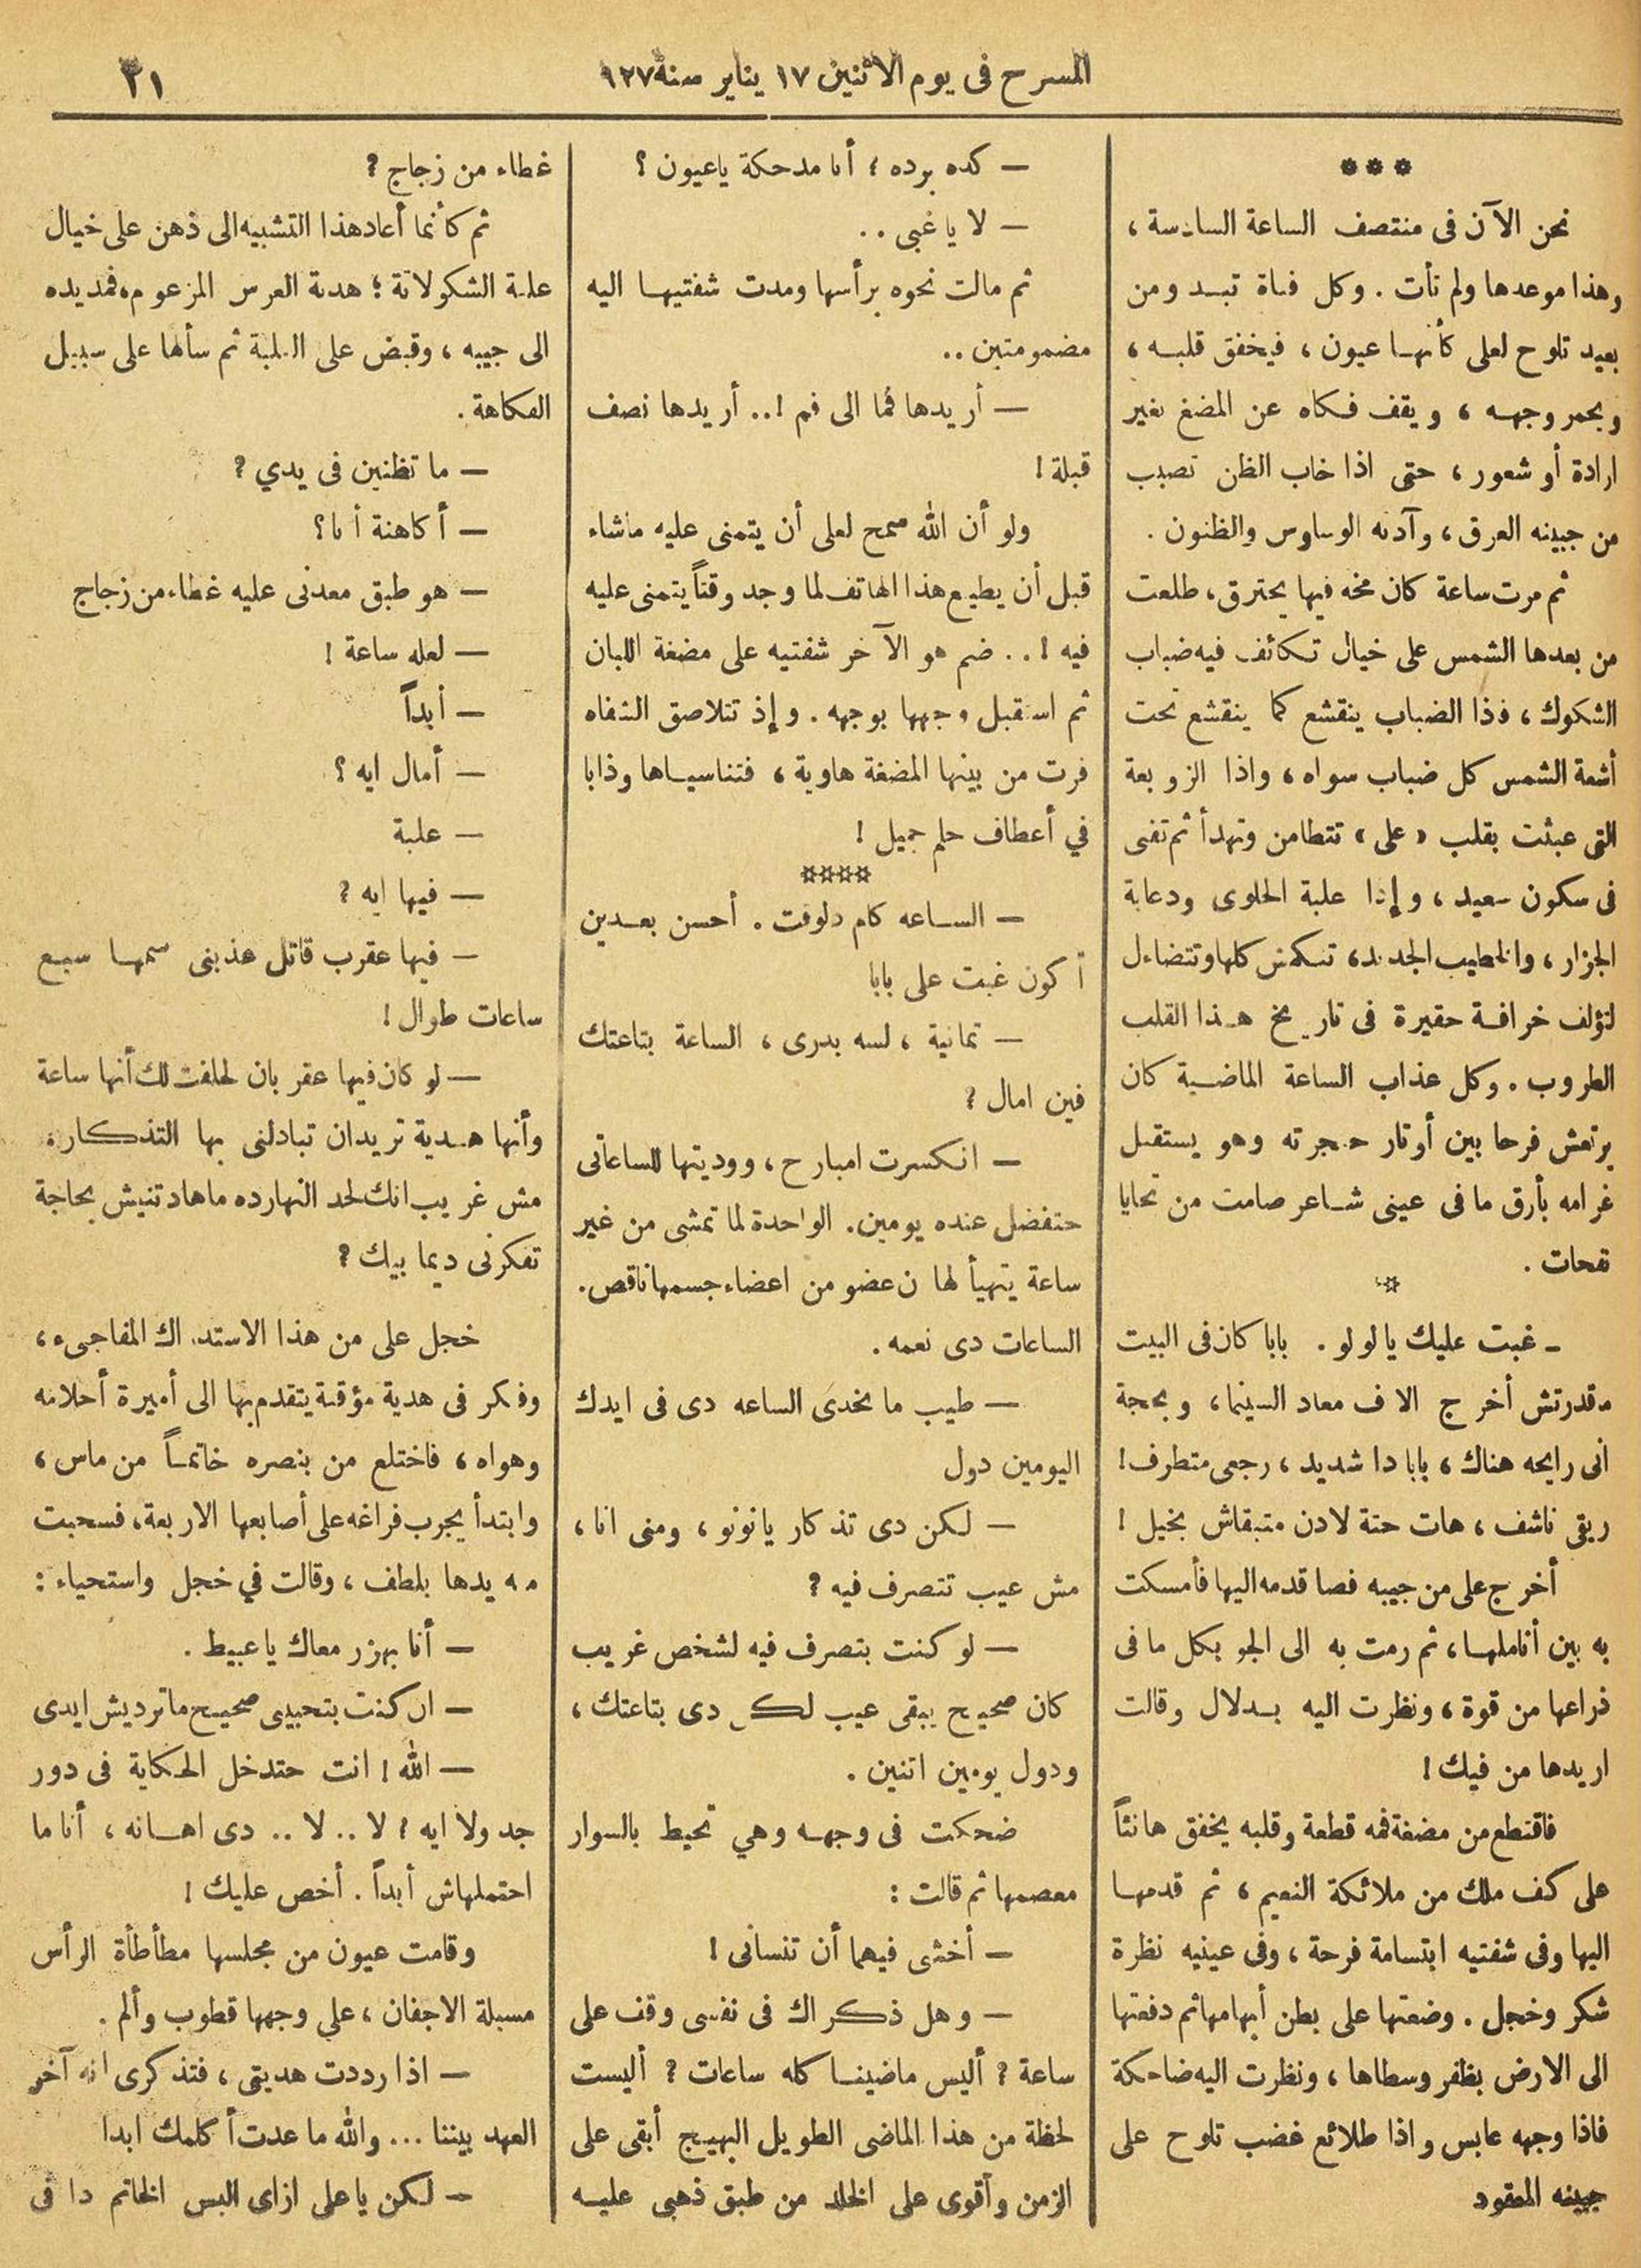 المسرح فى يوم الاثنين ١٧ يناير سنة ٩٢٧
٢١
***
نحن الآن فى منتصف الساعة السادسة ،
وهذا موعدها ولم تأت . وكل فتاة تبدو من
بعيد تلوح لعلى كأنها عيون ، فيخفق قلبه ،
ويحمر وجهه ، ويقف فكاه عن المضغ بغير
ارادة أو شعور ، حتى اذا خاب الظن تصبب
من جبينه العرق ، وآدته الوساوس والظنون .
ثم مرت ساعة كان مخه فيها يحترق ، طلعت
من بعدها الشمس على خيال تكاثف فيه ضباب
الشكوك ، فذا الضباب ينقشع كما ينقشع تحت
أشعة الشمس كل ضباب سواه ، واذا الزوبعة
التى عبثت بقلب « على » تتطامن وتهدأ ثم تفنى
فى سكون سعيد ، وإذا علبة الحلوى ودعابة
الجزار ، والخطيب الجديد ، تنكمش كلها وتتضاءل
لتؤلف خرافة حقيرة فى تاريخ هذا القلب
الطروب . وكل عذاب الساعة الماضية كان
يرتعش فرحا بين أوتار حنجرته وهو يستقبل
غرامه بأرق ما فى عينى شاعر صامت من تحايا
تحات .
☆
ـ غبت عليك يا لولو . بابا كان فى البيت
مقدرتش أخرج الا ف معاد السينما ، وبحجة
انى رايحه هناك ، بابا دا شديد ، رجعى متطرف !
ريقى ناشف ، هات حتة لادن متبقاش بخيل !
أخرج على من جيبه فصا قدمه اليها فأمسكت
به بين أناملها ، ثم رمت به الى الجو بكل ما فى
ذراعها من قوة ، ونظرت اليه بدلال وقالت
اريدها من فيك !
فاقتطع من مضغة فمه قطعة وقلبه يخفق هانئاً
على كف ملك من ملائكة النعيم ، ثم قدمها
اليها وفى شفتيه ابتسامة فرحة ، وفى عينيه نظرة
شكر وخجل . وضعتها على بطن أبهامها ثم دفعتها
الى الارض بظفر وسطاها ، ونظرت اليه ضاحكة
فاذا وجهه عابس واذا طلائع غضب تلوح على
جبينه المعقود
— كده برده ؛ أنا مدحكة يا عيون ؟
— لا يا غبى . .
ثم مالت نحوه برأسها ومدت شفتيها اليه
مضمومتين ..
— أريدها فما الى فم ! .. أريدها نصف
قبلة !
ولو أن الله سمح لعلى أن يتمنى عليه ماشاء
قبل أن يطيع هذا الهاتف لما وجد وقتاً يتمنى عليه
فيه ! .. ضم هو الآخر شفتيه على مضغة اللبان
ثم استقبل وجهها بوجهه . وإذ تتلاصق الشفاه
فرت من بينها المضغة هاوية ، فتناسياها وذابا
في أعطاف حلم جميل !
☆☆☆☆
— الساعه كام دلوقت . أحسن بعدين
أكون غبت على بابا
— تمانية ، لسه بدرى ، الساعة بتاعتك
فين امال ؟
— انكسرت امبارح ، ووديتها للساعاتى
حتفضل عنده يومين . الواحدة لما تمشى من غير
ساعة يتهيأ لها ن عضو من اعضاء جسمها ناقص .
الساعات دى نعمه .
— طيب ما تخدى الساعه دى فى ايدك
اليومين دول
— لكن دى تذكار يا نونو ، ومنى انا ،
مش عيب تتصرف فيه ؟
— لو كنت بتصرف فيه لشخص غريب
كان صحيح يبقى عيب لكن دى بتاعتك ،
ودول يومين اتنين .
ضحكت فى وجهه وهي تحيط بالسوار
معصمها ثم قالت :
— أخشى فيهما أن تنسانى !
— وهل ذكراك فى نفسى وقف على
ساعة ؟ أليس ماضينا كله ساعات ؟ أليست
لحظة من هذا الماضى الطويل البهيج أبقى على
الزمن وأقوى على الخلد من طبق ذهبى عليه
غطاء من زجاج ؟
ثم كأنما أعاد هذا التشبيه الى ذهن على خيال
علبة الشكولاتة ؛ هدية العرس المزعوم ، فمد يده
الى جيبه ، وقبض على العلبة ثم سألها على سبيل
الفكاهة .
— ما تظنين فى يدي ؟
— أكاهنة أنا ؟
— هو طبق معدنى عليه غطاء من زجاج
— لعله ساعة !
— أبداً
— أمال ايه ؟
— علبة
— فيها ايه ؟
— فيها عقرب قاتل عذبنى سمها سبع
ساعات طوال !
— لو كان فيها عقربان لحلفت لك أنها ساعة
وأنها هدية تريدان تبادلنى بها التذكار .
مش غريب انك لحد النهارده ماهادتنيش بحاجة
تفكرنى ديما بيك ؟
خجل على من هذا الاستدراك المفاجىء ،
وفكر فى هدية مؤقتة يتقدم بها الى أميرة أحلامه
وهواه ، فاختلع من بنصره خاتماً من ماس ،
وابتدأ يجرب فراغه على أصابعها الاربعة ، فسحبت
منه يدها بلطف ، وقالت في خجل واستحياء :
— أنا بهزر معاك يا عبيط .
— ان كنت بتحبينى صحيح ماترديش ايدى
— الله ! انت حتدخل الحكاية فى دور
جد ولا ايه ؛ لا .. لا .. دى اهانه ، أنا ما
احتملهاش أبداً . أخص عليك !
وقامت عيون من مجلسها مطأطأة الرأس
مسبلة الاجفان ، علي وجهها قطوب وألم .
— اذا رددت هديتى ، فتذكرى انه آخر
العهد بيننا ... والله ما عدت أكلمك ابدا
— لكن يا على ازاى البس الخاتم دا فى